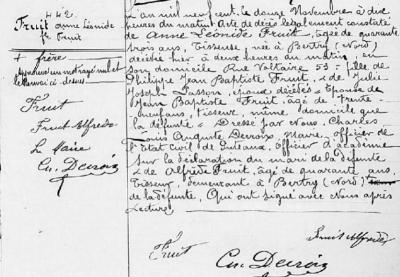 442
Fruit
anne Léonide
fe Fruit
+ frère
approuvé un mot rayé nul et
le renvoi ci-dessus
Fruit
Fruit Alfred
Le Maire
Ch. Decroix
L'an mil neuf cent, le douze Novembre à dix
heures du matin Acte de décès légalement constaté
de Anne Léonide Fruit, âgée de quarante
trois ans, Tisseuse, née à Bertry (Nord)
décédée hier à deux heures du matin, en
son domicile Rue Voltaire, 53 fille de
Philippe Jean Baptiste Fruit, & de Julie
Joseph Lasson, époux décédés & Epouse de
Jean Baptiste Fruit, âgé de trente
neuf ans, tisseur, même domicile que
la défunte & Dressé par Nous, Charles
Louis Auguste Decroix, Maire, officier de
l'Etat civil de Puteaux, officier d'académie
Sur la déclaration du mari de la défunte
& de Alfred Fruit, âgé de quarante ans,
Tisseur, demeurant à Bertry (Nord)
de la défunte, Qui ont signé avec Nous après
Lecture
Fruit
Fruit Alfred
Ch. Decroix